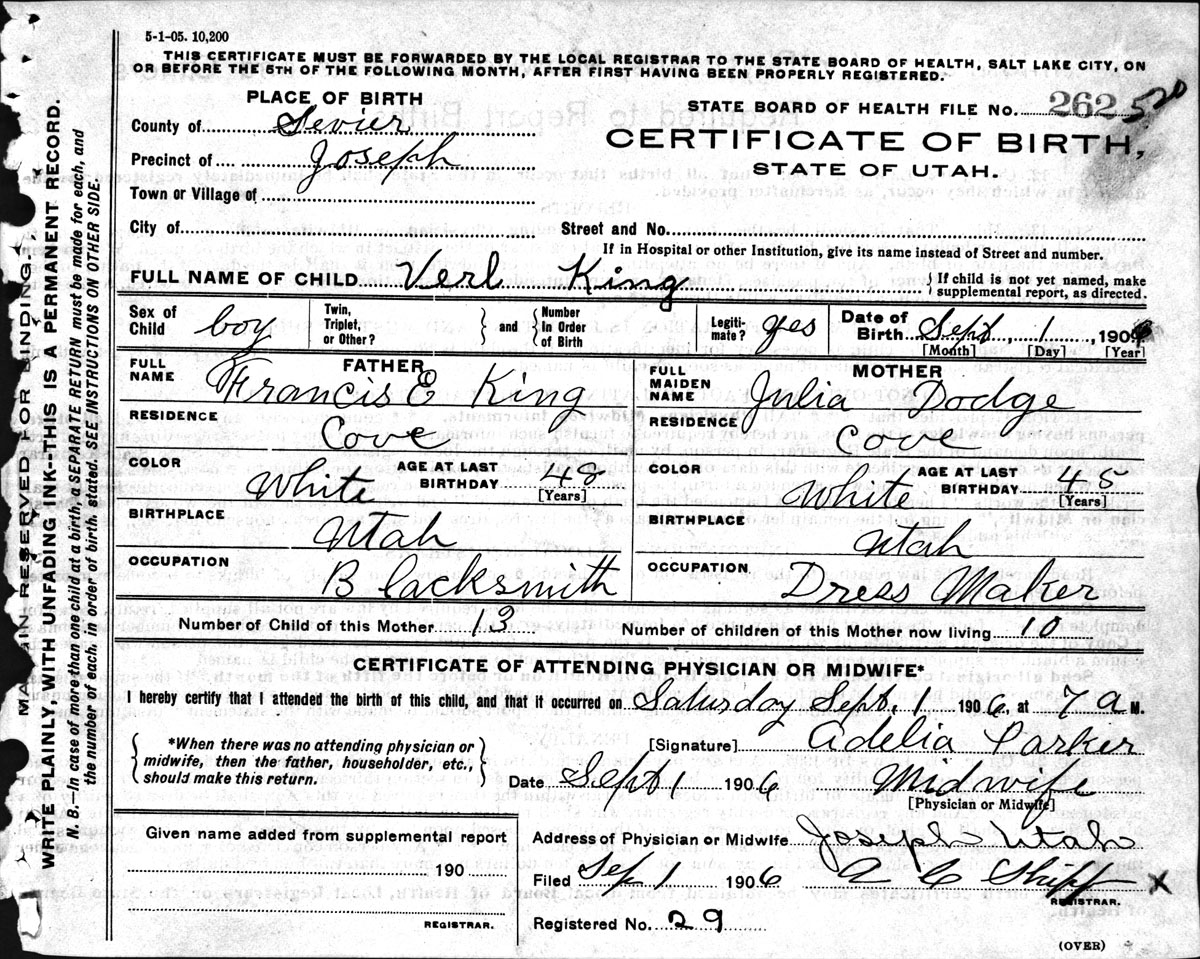 5-1-05. 10,200
THIS CERTIFICATE MUST BE FORWARDED BY THE LOCAL REGISTRAR TO THE STATE BOARD OF HEALTH, SALT LAKE CITY, ON
OR BEFORE THE 5TH OF THE FOLLOWING MONTH, AFTER FIRST HAVING BEEN PROPERLY REGISTERED.
PLACE OF BIRTH
County of Sevier
Precinct of Joseph
Town or Village of
City of
STATE BOARD OF HEALTH FILE No. 262 520
CERTIFICATE OF BIRTH,
STATE OF UTAH.
Street and No.
If in Hospital or other Institution, give its name instead of Street and number.
FULL NAME OF CHILD Verl King
{ If child is not yet named, make
supplemental report, as directed.
Sex of Child boy
Twin, Triplet, or Other? } and { Number In Order of Birth
Legiti- mate? yes
Date of Birth Sept 1, 1906
[Month] [Day] [Year]
FATHER
FULL NAME Francis E King
RESIDENCE Cove
COLOR White
AGE AT LAST BIRTHDAY 48
[Years]
BIRTHPLACE Utah
OCCUPATION Blacksmith
MOTHER
FULL MAIDEN NAME Julia Dodge
RESIDENCE Cove
COLOR White
AGE AT LAST BIRTHDAY 45
[Years]
BIRTHPLACE Utah
OCCUPATION Dress Maker
Number of Child of this Mother 13
Number of children of this Mother now living 10
CERTIFICATE OF ATTENDING PHYSICIAN OR MIDWIFE*
I hereby certify that I attended the birth of this child, and that it occurred on Saturday Sept. 1 1906, at 7 a M.
{ *When there was no attending physician or
midwife, then the father, householder, etc.,
should make this return. }
[Signature] Adelia Parker
Date Sept 1 1906 Midwife
[Physician or Midwife]
Given name added from supplemental report
190
REGISTRAR.
Address of Physician or Midwife Joseph Utah
Filed Sep 1 1906 A C Shipp X
REGISTRAR.
Registered No. 29
(OVER)
MARGIN RESERVED FOR BINDING.
WRITE PLAINLY, WITH UNFADING INK--THIS IS A PERMANENT RECORD.
N. B.--In case of more then one child at a birth, a SEPARATE RETURN must be made for each, and
the number of each. in order of birth, stated. SEE INSTRUCTIONS ON OTHER SIDE.